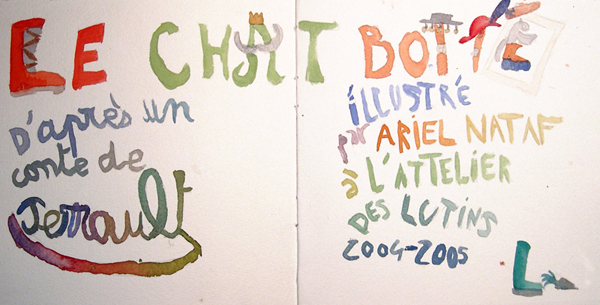 LE CHAT BOTTÉ
D'après un
conte de
Perrault
illUSTRÉ
par ARIEL NATAF
à L'ATTELIER
DES LUTINS
2004-2005